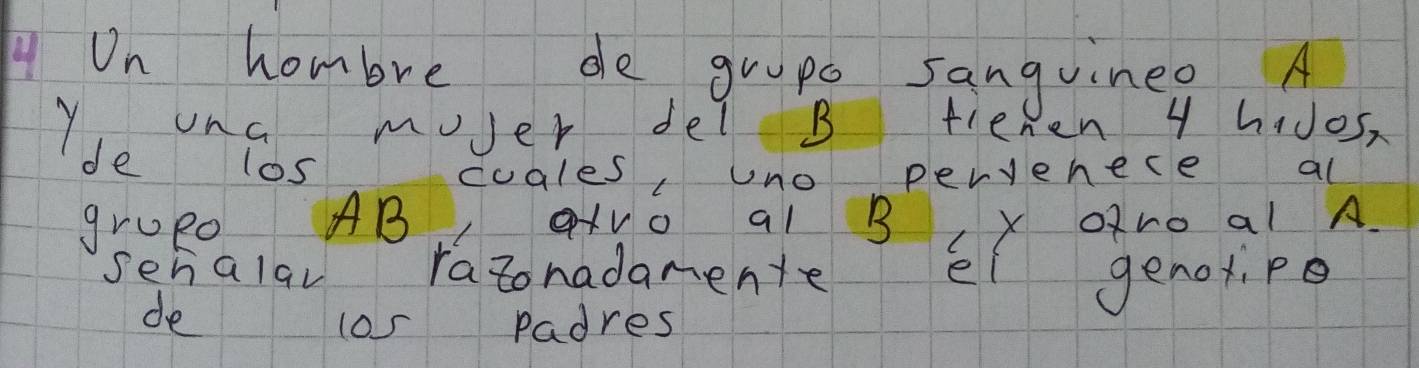 4 Un hombre de grupo sanguineo A
y una mujer del B tienen 4 hijos,
de los cuales, uno pertenece al
grupo AB, otro al B, y otro al A.
señalar razonadamente el genotipo
de los padres